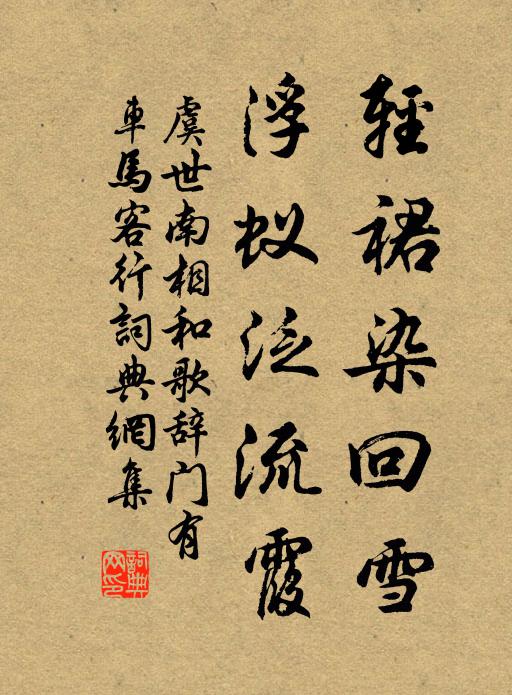 輕裙染回雪
浮蚁泛流霞
虞世南相和歌辞门有
車馬客行詞典網集
詞典网印